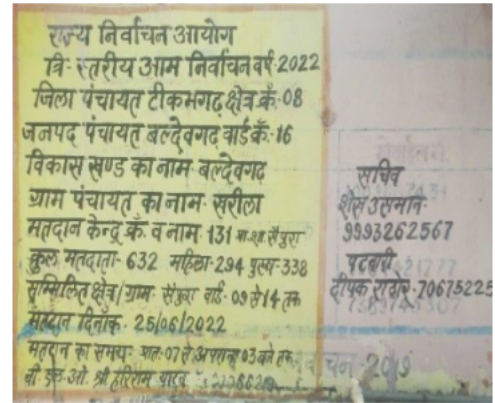 राज्य निर्वाचन आयोग
त्रि-स्तरीय आम निर्वाचन वर्ष 2022
जिला पंचायत टीकमगढ़ क्षेत्र क्रं.-08
जनपद पंचायत बल्देवगढ़ वार्ड क्रं.-16
विकास खण्ड का नाम- बल्देवगढ़
ग्राम पंचायत का नाम- सरीला
मतदान केन्द्र क्रं. व नाम- 131 मा.शा. सैपुरा
कुल मतदाता- 632 महिला-294 पुरुष-338
सम्मिलित क्षेत्र/ग्राम- सैपुरा वार्ड- 09 से 14 तक
मतदान दिनाँक- 25/06/2022
मतदान का समय- प्रातः 07 से अपरान्ह 03 बजे तक
बी.एल.ओ. श्री हरिराम यादव
सचिव
शेख उसमान-
9993262567
पटवारी
दीपक 70675225
चन-2019